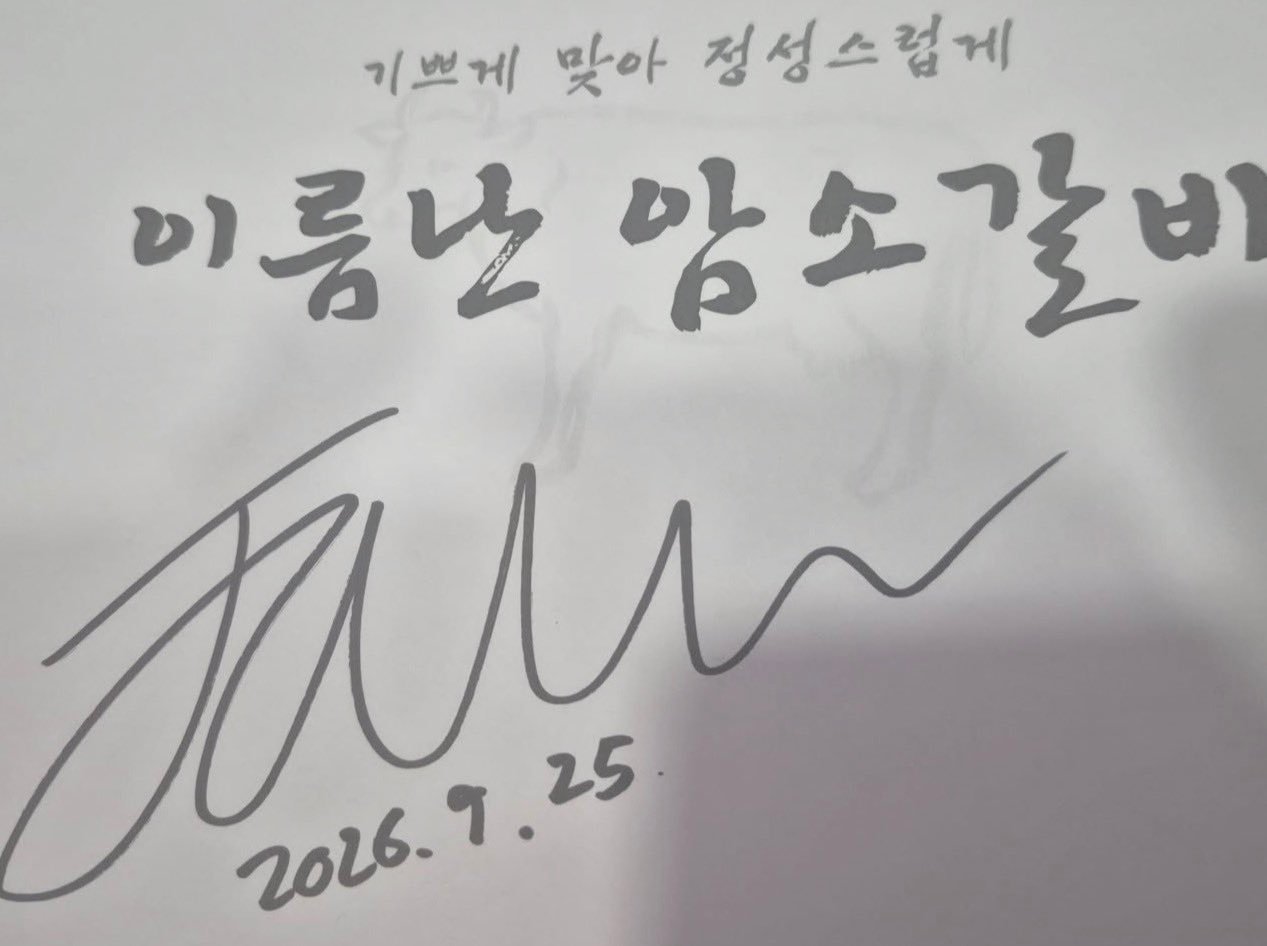 기쁘게 맞아 정성스럽게
이름난 암소갈비
2026.9.25.